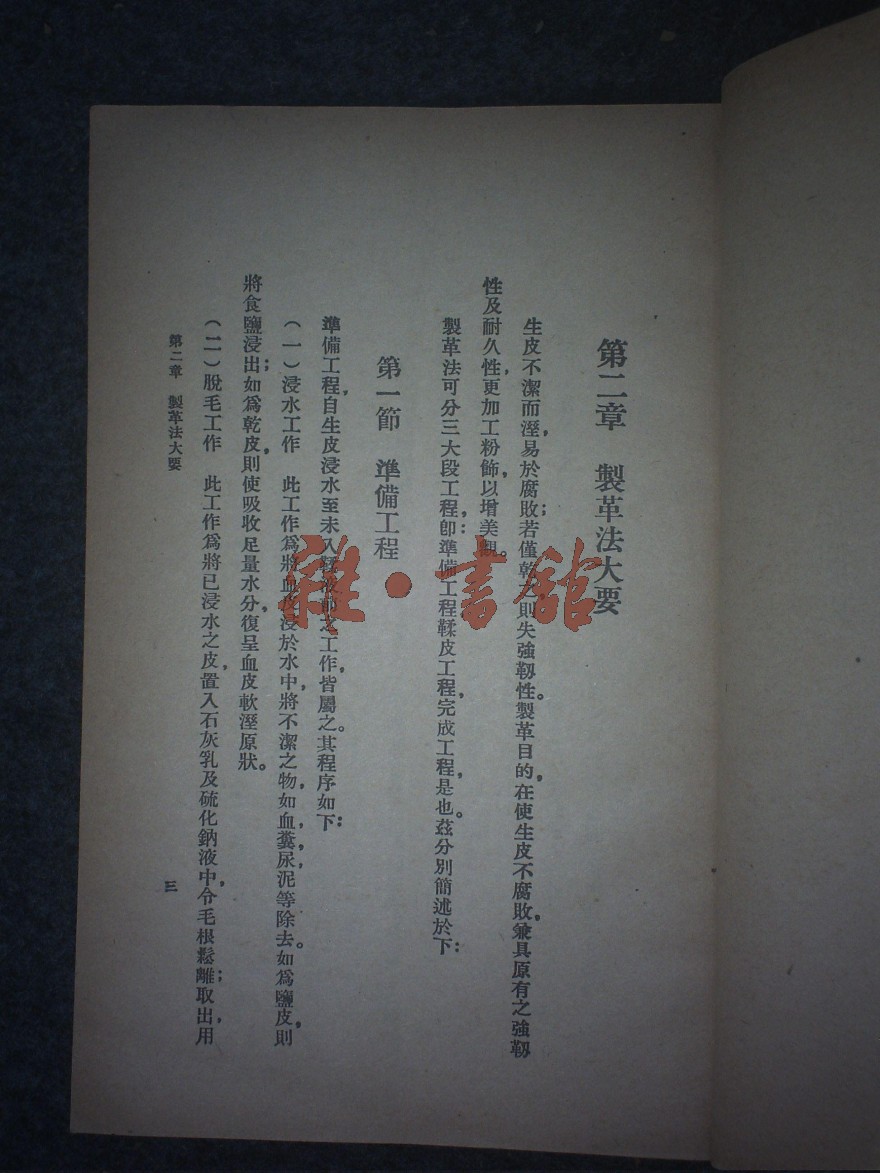 第二章　製革法大要
生皮不潔而溼，易於腐敗；若僅乾之，則失強韌性。製革目的，在使生皮不腐敗，兼具原有之強韌
性及耐久性，更加工粉飾，以增美觀。
製革法可分三大段工程：卽準備工程，鞣皮工程，完成工程，是也。茲分別簡述於下：
第一節　準備工程
準備工程，自生皮浸水至未入鞣液 之工作，皆屬之。其程序如下：
（一）浸水工作　此工作爲將血皮浸於水中，將不潔之物，如血，糞，尿，泥等除去。如爲鹽皮，則
將食鹽浸出；如爲乾皮，則使吸收足量水分，復呈血皮軟溼原狀。
（二）脫毛工作　此工作爲將已浸水之皮，置入石灰乳及硫化鈉液中，令毛根鬆離；取出，用
第二章　製革法大要
三
雜·書舘